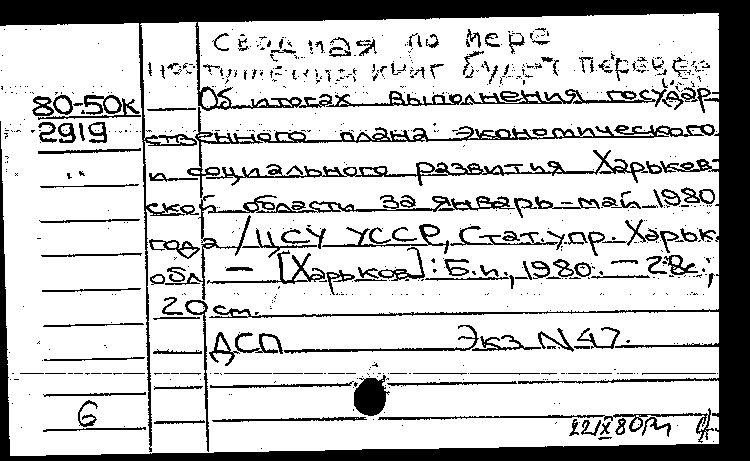 Сводная по мере
поступления книг будет перевед
80-50к Об итогах выполнения государ-
2919 ственного плана экономического
и социального развития Харьков-
ской области за январь-май 1980
года /ЦСУ УССР, Стат. упр. Харьк.
обл. — [Харьков]: Б.и., 1980. — 28с.;
20 см.
ДСП Экз N 47.
6
22/X 80